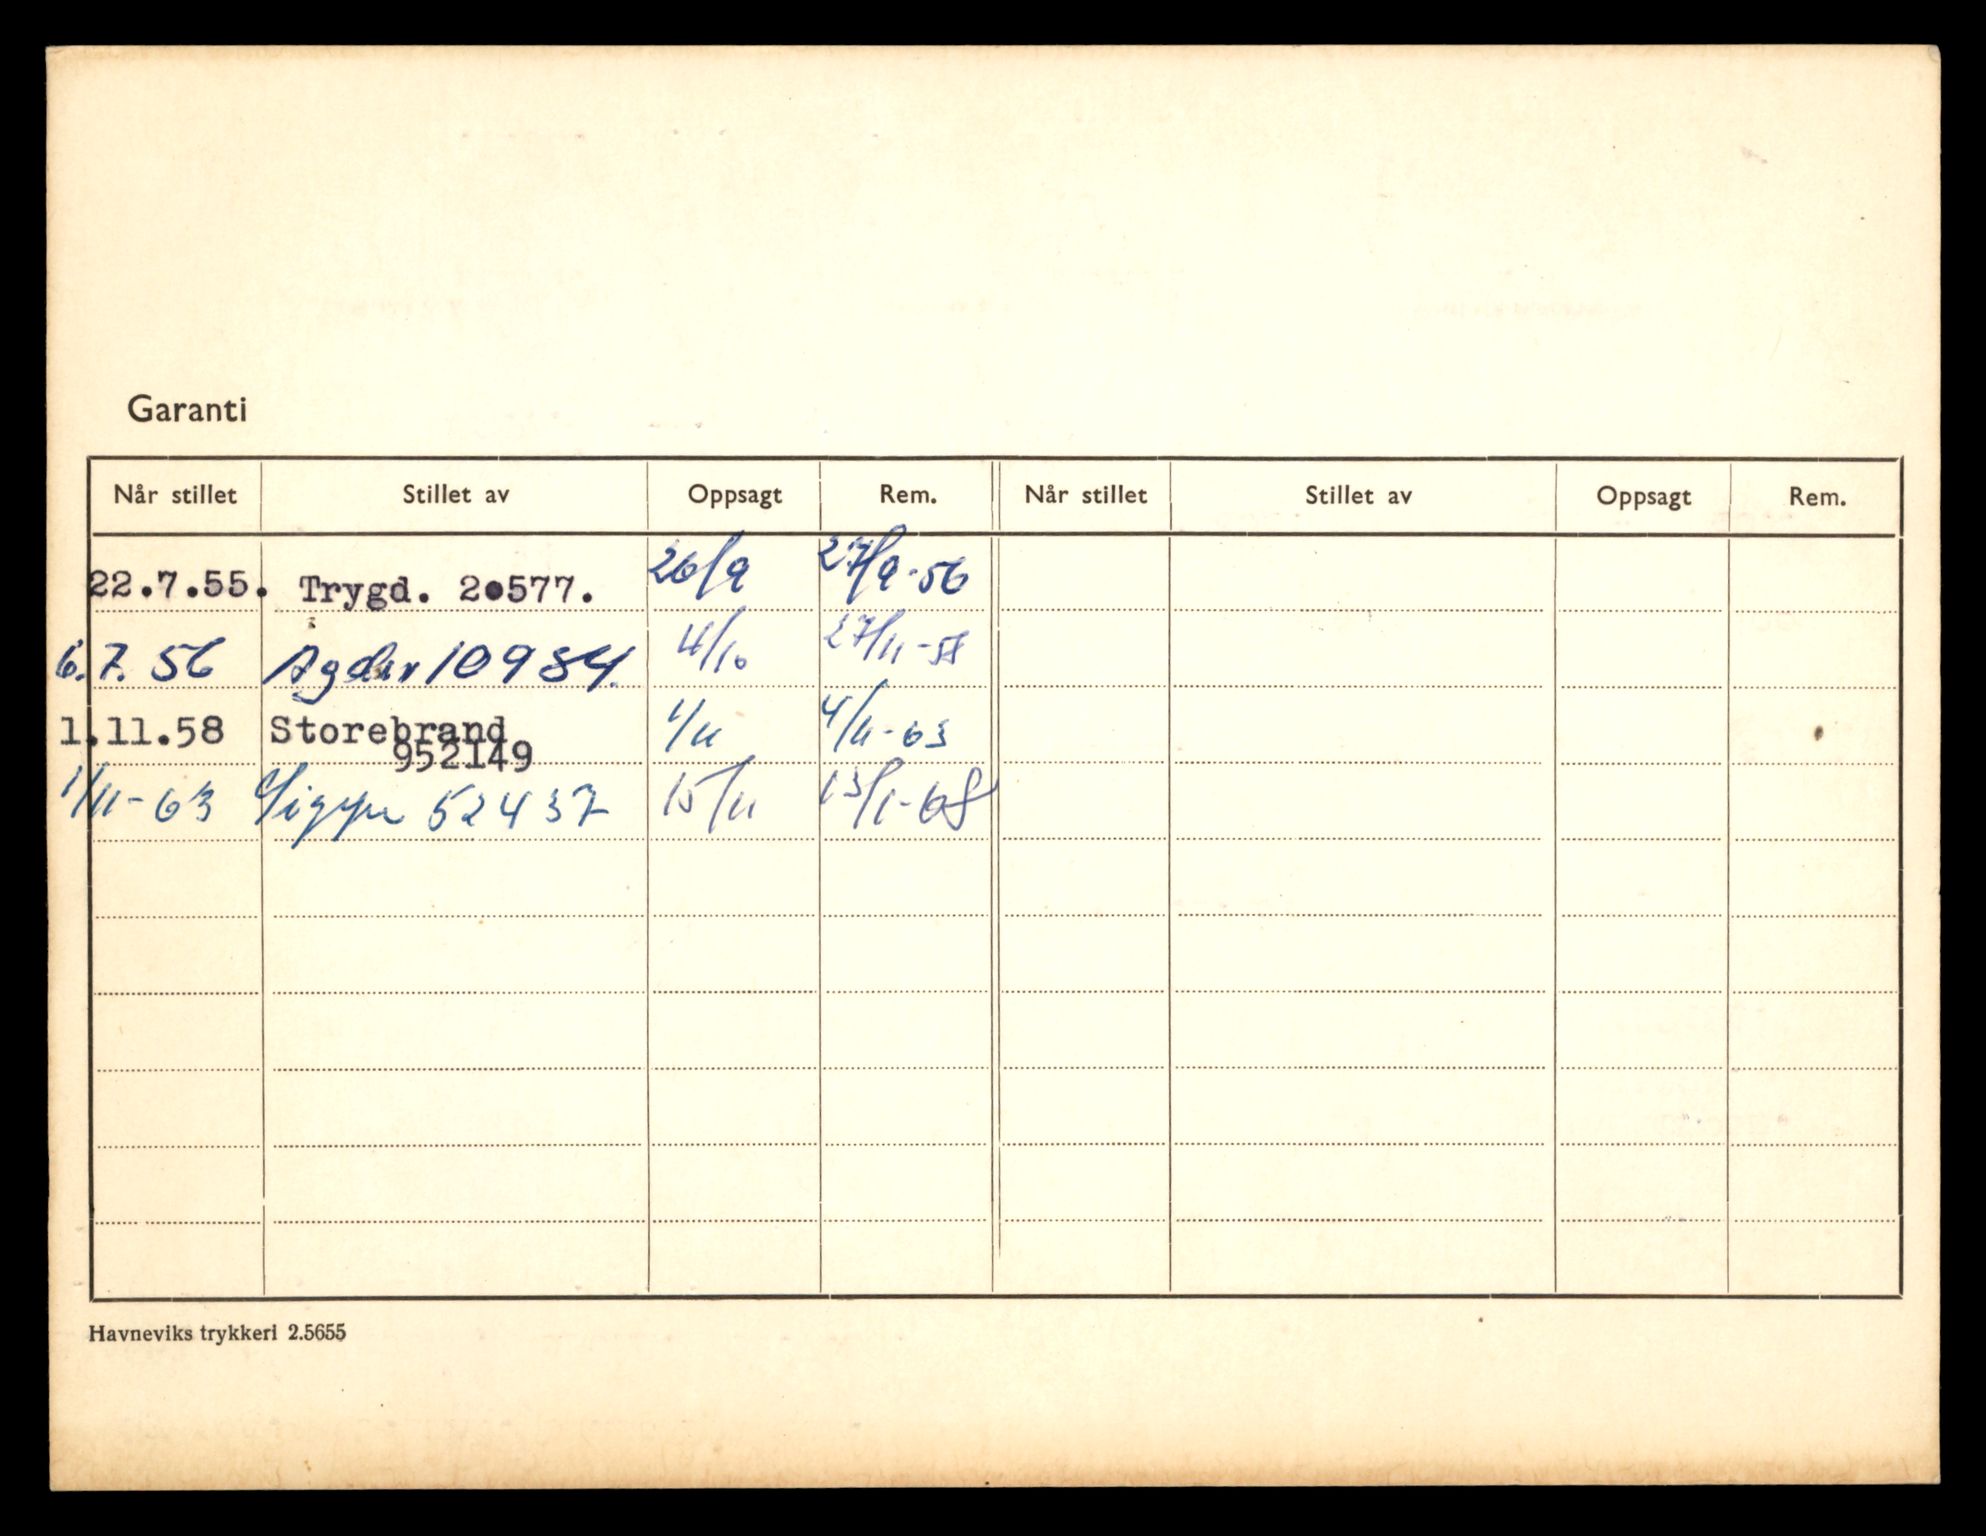 Garanti
Når stillet Stillet av Oppsagt Rem. Når stillet Stillet av Oppsagt Rem.
22.7.55. Trygd. 20577. 26/9 27/9-56
6.7.56 Agder 10984. 4/10 27/11-58
1.11.58 Storebrand 1/11 4/11-63
952149
1/11-63 52437 15/11 13/1-68
Havneviks trykkeri 2.5655